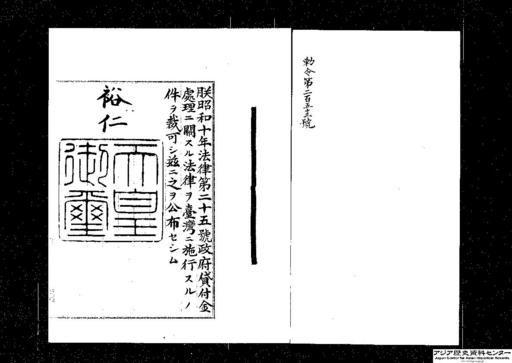 勅令第二百五十三號
朕昭和十年法律第二十五號政府貸付金
處理ニ關スル法律ヲ臺灣ニ施行スルノ
件ヲ裁可シ茲ニ之ヲ公布セシム
裕仁
天皇
御璽
アジア歴史資料センター
Japan Center for Asian Historical Records